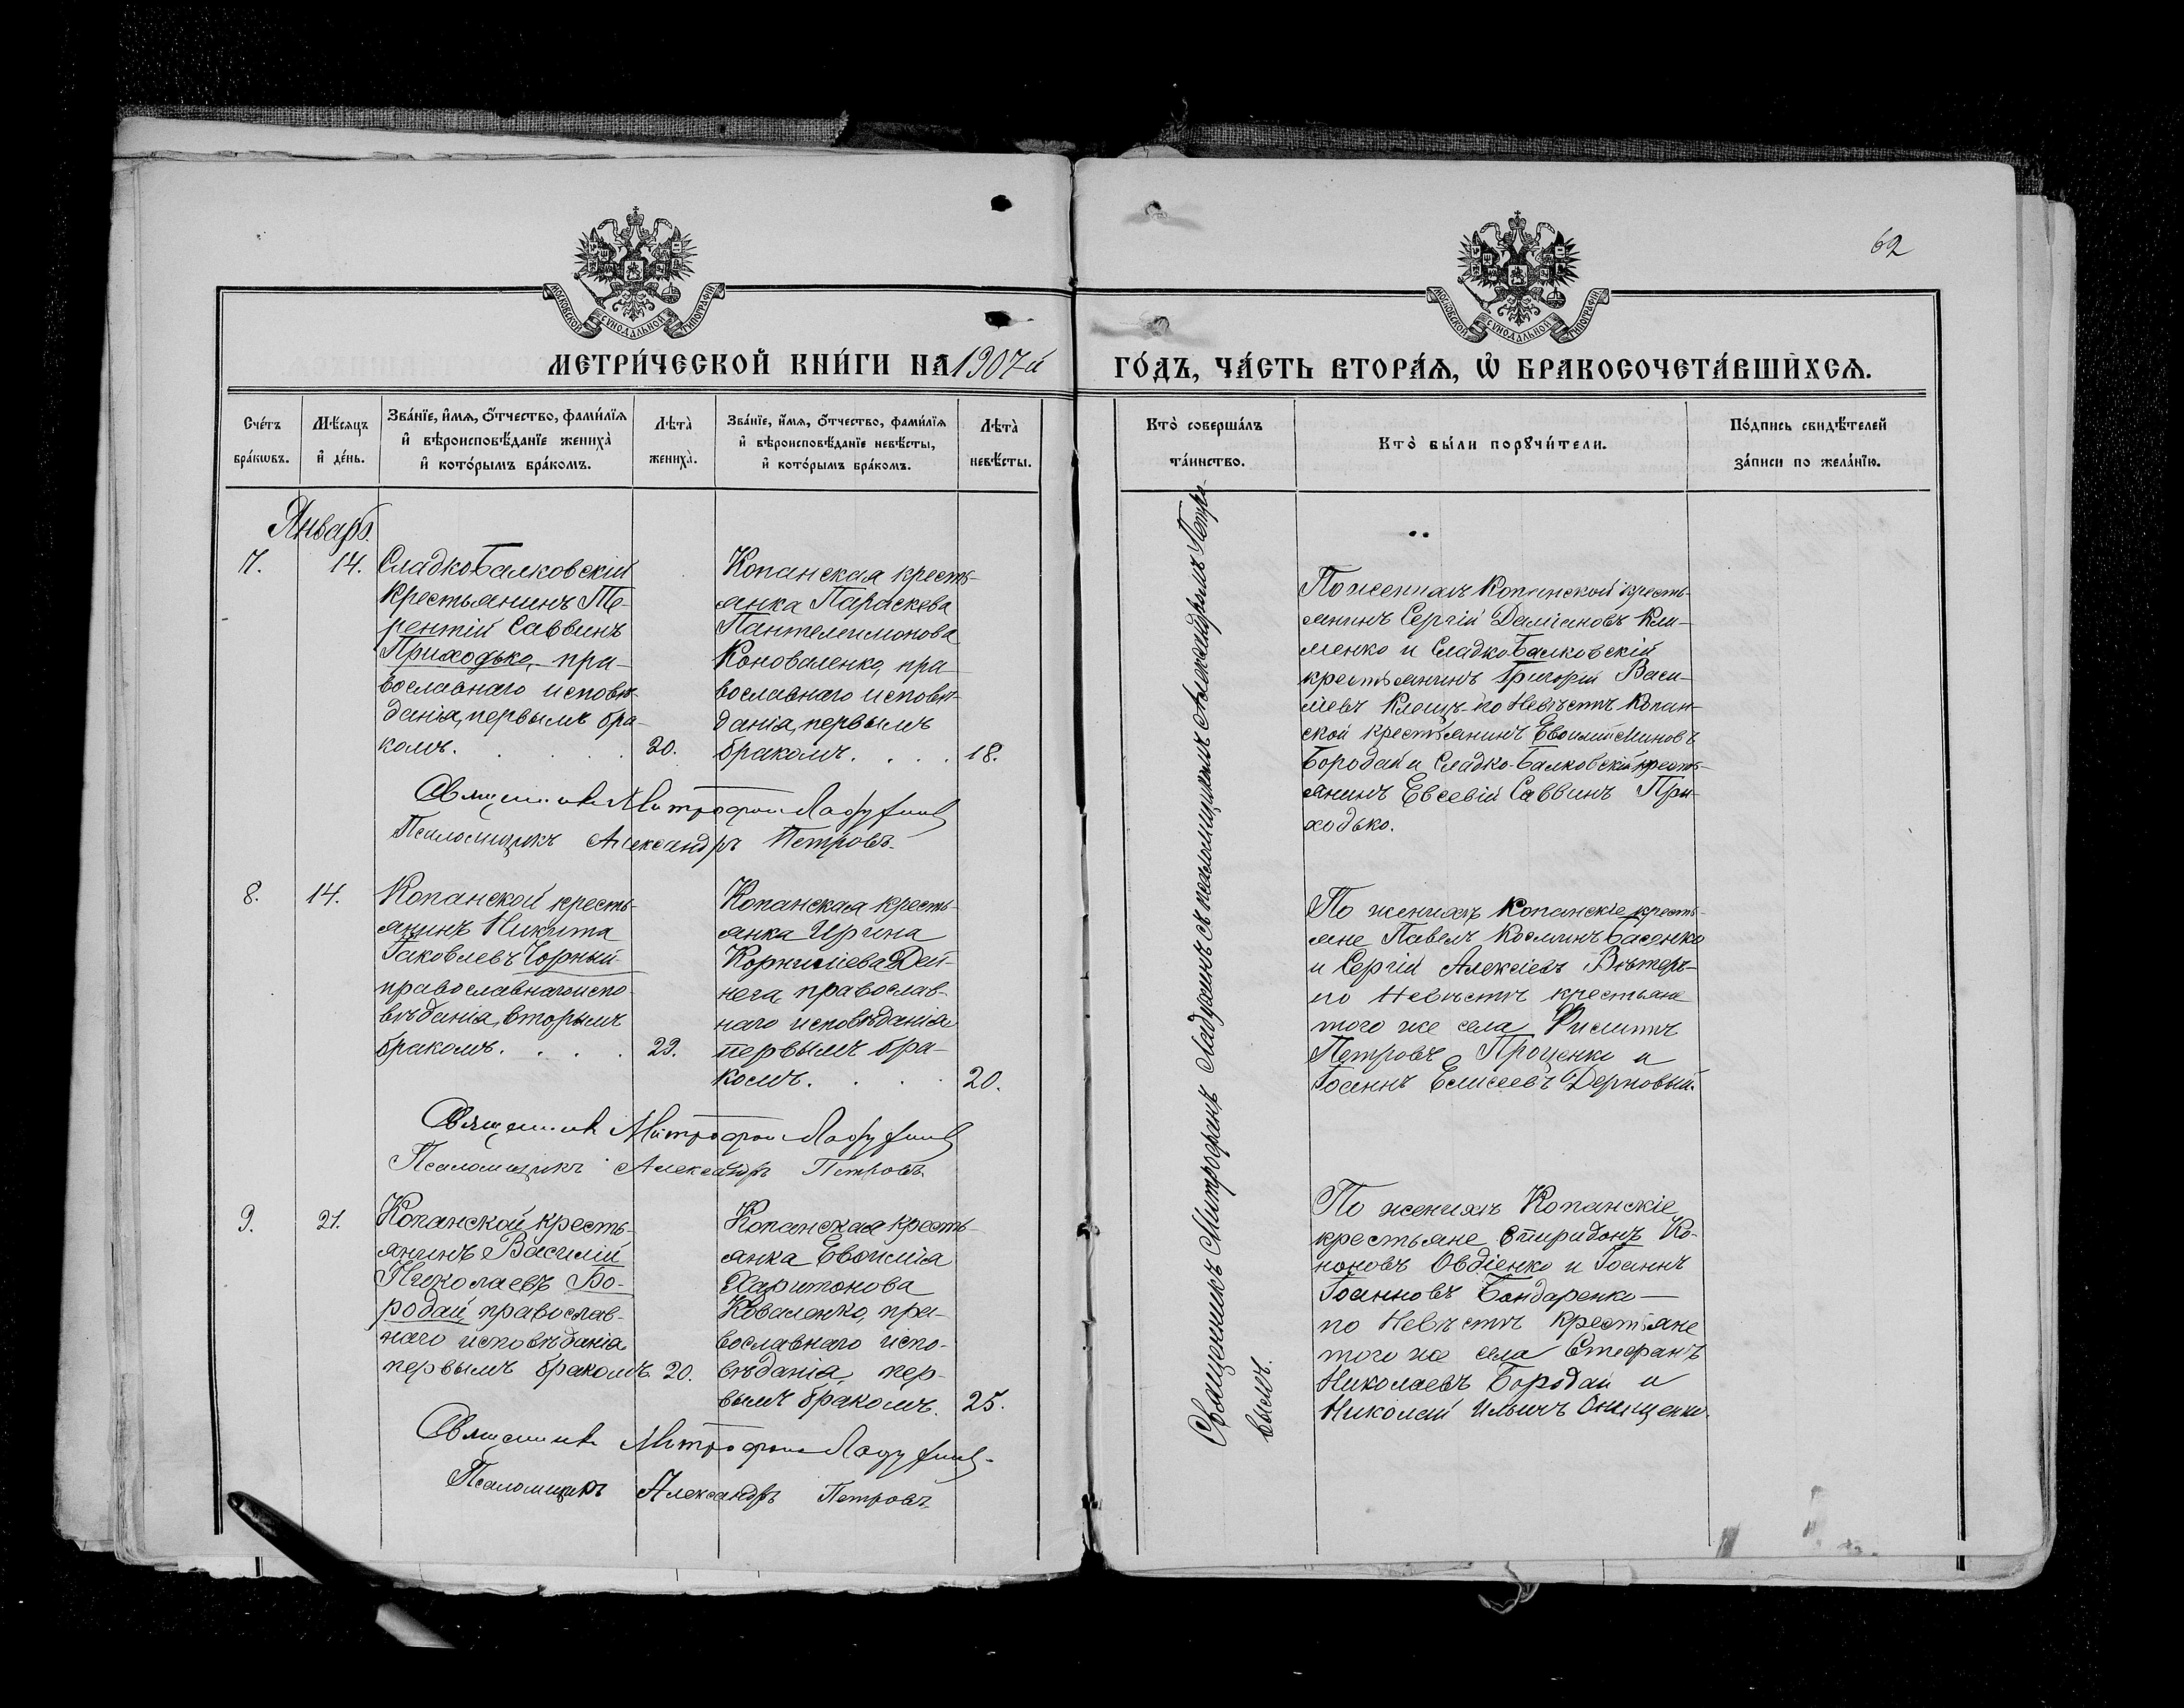 62
МОСКОВСКОЙ СѴНОДАЛЬНОЙ ТИПОГРАФІИ
МОСКОВСКОЙ СѴНОДАЛЬНОЙ ТИПОГРАФІИ
МЕТРИ́ЧЕСКОЙ КНИ́ГИ НА 1907-й
ГО́ДЪ, ЧА́СТЬ ВТОРА́Ѧ, Ѡ҆ БРАКОСОЧЕТА́ВШИХСѦ.
Сче́тъ бра́кѡвъ.
Мѣ́сяцъ и҆ де́нь.
Зва́нїе, и҆́мѧ, о҆́тчество, фами́лїѧ
и҆ вѣроисповѣ́данїе жениха̀
и҆ кото́рымъ бра́комъ.
Лѣта̀ жениха̀.
Зва́нїе, и҆́мѧ, о҆́тчество, фами́лїѧ
и҆ вѣроисповѣ́данїе невѣ́сты,
и҆ кото́рымъ бра́комъ.
Лѣта̀ невѣ́сты.
Кто̀ соверша́лъ
та́инство.
Кто̀ бы́ли порꙋчи́тели.
По́дпись свидѣ́телей
за́писи по жела́нїю.
Январь.
7.
14.
СладкоБалковскій
крестьянинъ Те-
рентій Саввинъ
Приходько, пра-
вославнаго исповѣ-
данія, первымъ бра-
комъ. . . . .
20.
Копанская кресть-
янка Параскева
Пантелеимонова
Коноваленко, пра-
вославнаго исповѣ-
данія, первымъ
бракомъ. . . .
18.
По женихѣ Копанской кресть-
янинъ Сергій Даміановъ Кли-
менко и СладкоБалковскій
крестьянинъ Григорій Васи-
ліевъ Клещъ-по Невѣстѣ Копан-
ской крестьянинъ Евѳимій Миновъ
Бородай и Сладко-Балковскій кресть-
янинъ Евсевій Саввинъ При-
ходько.
Священникъ Митрофанъ Ладухинъ
Псаломщикъ Александръ Петровъ.
8.
14.
Копанской кресть-
янинъ Никита
Іаковлевъ Чорный
православнаго испо-
вѣданія, вторымъ
бракомъ. . . .
29.
Копанская кресть-
янка Ирина
Корниліева Дей-
нега, православ-
наго исповѣданія
первымъ бра-
комъ. . . .
20.
По женихѣ Копанскіе кресть-
яне Павелъ Косминъ Басенко
и Сергій Алексіевъ Вѣтеръ-
по Невѣстѣ крестьяне
того же села
Петровъ Проценко и
Іоаннъ Елисеевъ Дерновый.
Священникъ Митрофанъ Ладухинъ
Псаломщикъ Александръ Петровъ.
9.
21.
Копанской кресть-
янинъ Василій
Николаевъ Бо-
родай, православ-
наго исповѣданія
первымъ бракомъ.
20.
Копанская кресть-
янка Евѳимія
Харитонова
Коваленко, пра-
вославнаго испо-
вѣданія, пер-
вымъ бракомъ.
25.
По женихѣ Копанскіе
крестьяне Спиридонъ Ко-
ноновъ Овдіенко и Іоаннъ
Іоанновъ Бондаренко —
по Невѣстѣ крестьяне
того же села Стефанъ
Николаевъ Бородай и
Николай Ильичъ Онищенко.
Священникъ Митрофанъ Ладухинъ.
Псаломщикъ Александръ Петровъ.
Священникъ Митрофанъ Ладухинъ съ псаломщикомъ Александромъ Петро-
вымъ.